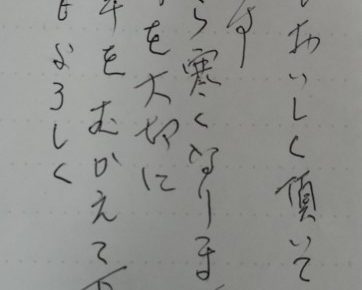 おいしく頂いて
す
ら寒くなりま
を大切に
年をむかえて下
もよろしく